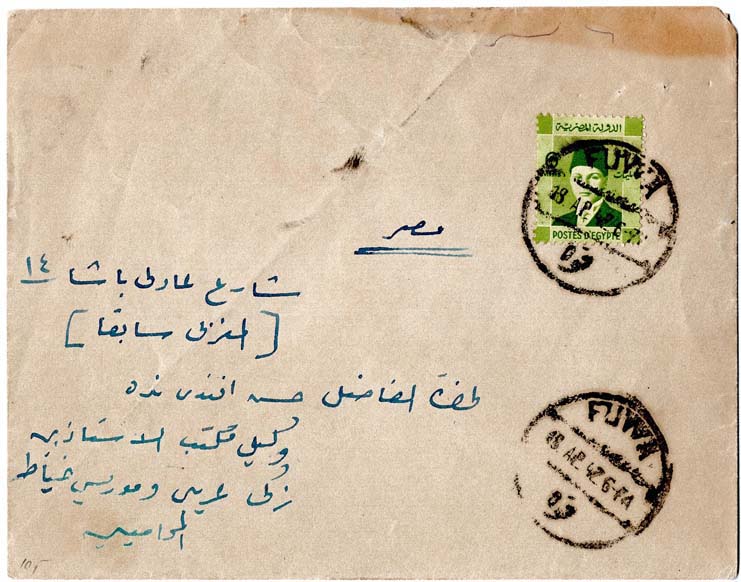 الدولة المصرية
POSTES D'EGYPTE
FUWA
18 AP. 42. 6-
فوه
مصر
شارع عدلى باشا ١٤
[المغربى سابقا]
لحضرة الفاضل حسن افندى نده
وكيل مكتب الاستاذين
زكى عريبى وموريس خياط
المحاميين
FUWA
18 AP. 42. 6-PM
فوه
101